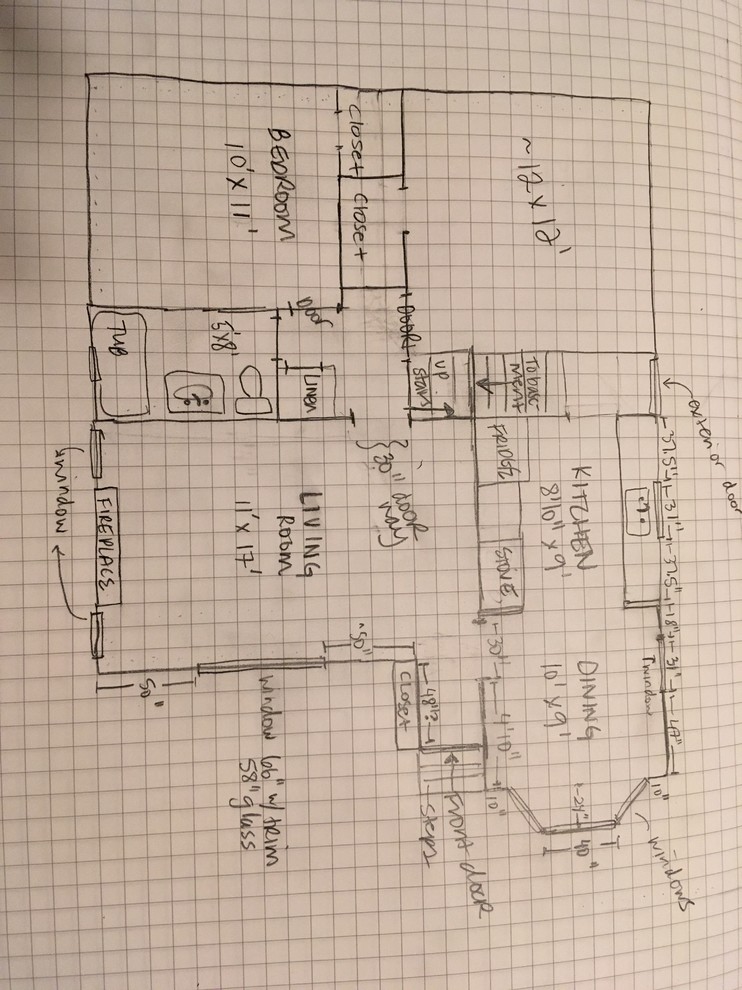 ~12 x 12'
Closet
Closet
BEDROOM
10' x 11'
Door
Door
TUB
5'x8'
LINEN
up
stairs
To base-
MENT
exterior door
FRIDGE
STOVE
KITCHEN
8'10" x 9'
37.5"
31"
37.5"
18"
31"
47"
window
30" door
way
LIVING
ROOM
11' x 17'
FIREPLACE
window
DINING
10' x 9'
30"
4'10"
50"
Closet
48"?
50"
window 66" w/ trim
58" glass
steps
front door
10"
24"
40"
10"
windows